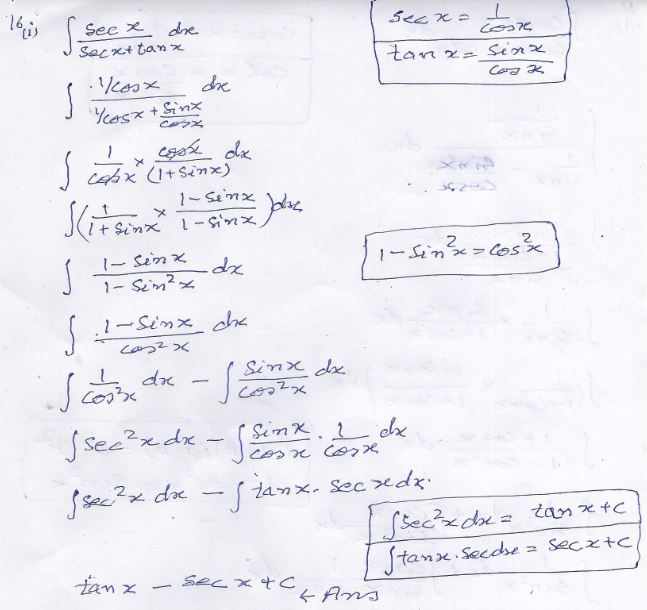 16(i) ∫ sec x / (sec x + tan x) dx
sec x = 1/cos x
tan x = sin x / cos x
∫ (1/cos x) / (1/cos x + sin x/cos x) dx
∫ 1/cos x × cos x/(1+sin x) dx
∫ (1/(1+sin x) × (1-sin x)/(1-sin x)) dx
∫ (1-sin x)/(1-sin² x) dx
1-sin²x = cos²x
∫ (1-sin x)/cos² x dx
∫ 1/cos²x dx - ∫ sin x/cos²x dx
∫ sec²x dx - ∫ sin x/cos x . 1/cos x dx
∫ sec²x dx - ∫ tan x. sec x dx.
∫ sec²x dx = tan x + c
∫ tan x. sec dx = sec x + c
tan x - sec x + c ← Ans